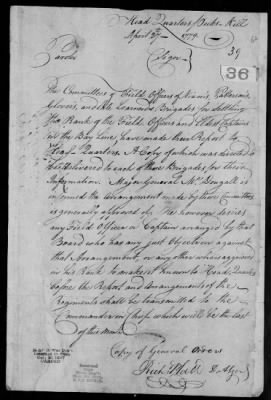 Head Quarters Peeks-Kill
April 27th 1779
Parole Sign
39
36
The Committees of Field Officers of Nixon's, Pattersons
Glovers, and late Learneds Brigades for Settling
the Rank of the Field Officers and Captains
in the Bay Line, have made their Report to
Head Quarters. A Copy of which was directed to
be delivered to each of those Brigades for their
information. Major General McDougall is
informed the Arrangement made by the Committee
is generally approved of. He however desires
any Field Officer or Captain arranged by that
Board who has any just Objections against
that Arrangement, or any other who is aggrieved
in his Rank to make it known to Head Quarters
before the Report and Arrangement of the
Regiments shall be transmitted to the
Commander in Chief which will be the last
of this Month
Copy of General Orders
Rich Platt